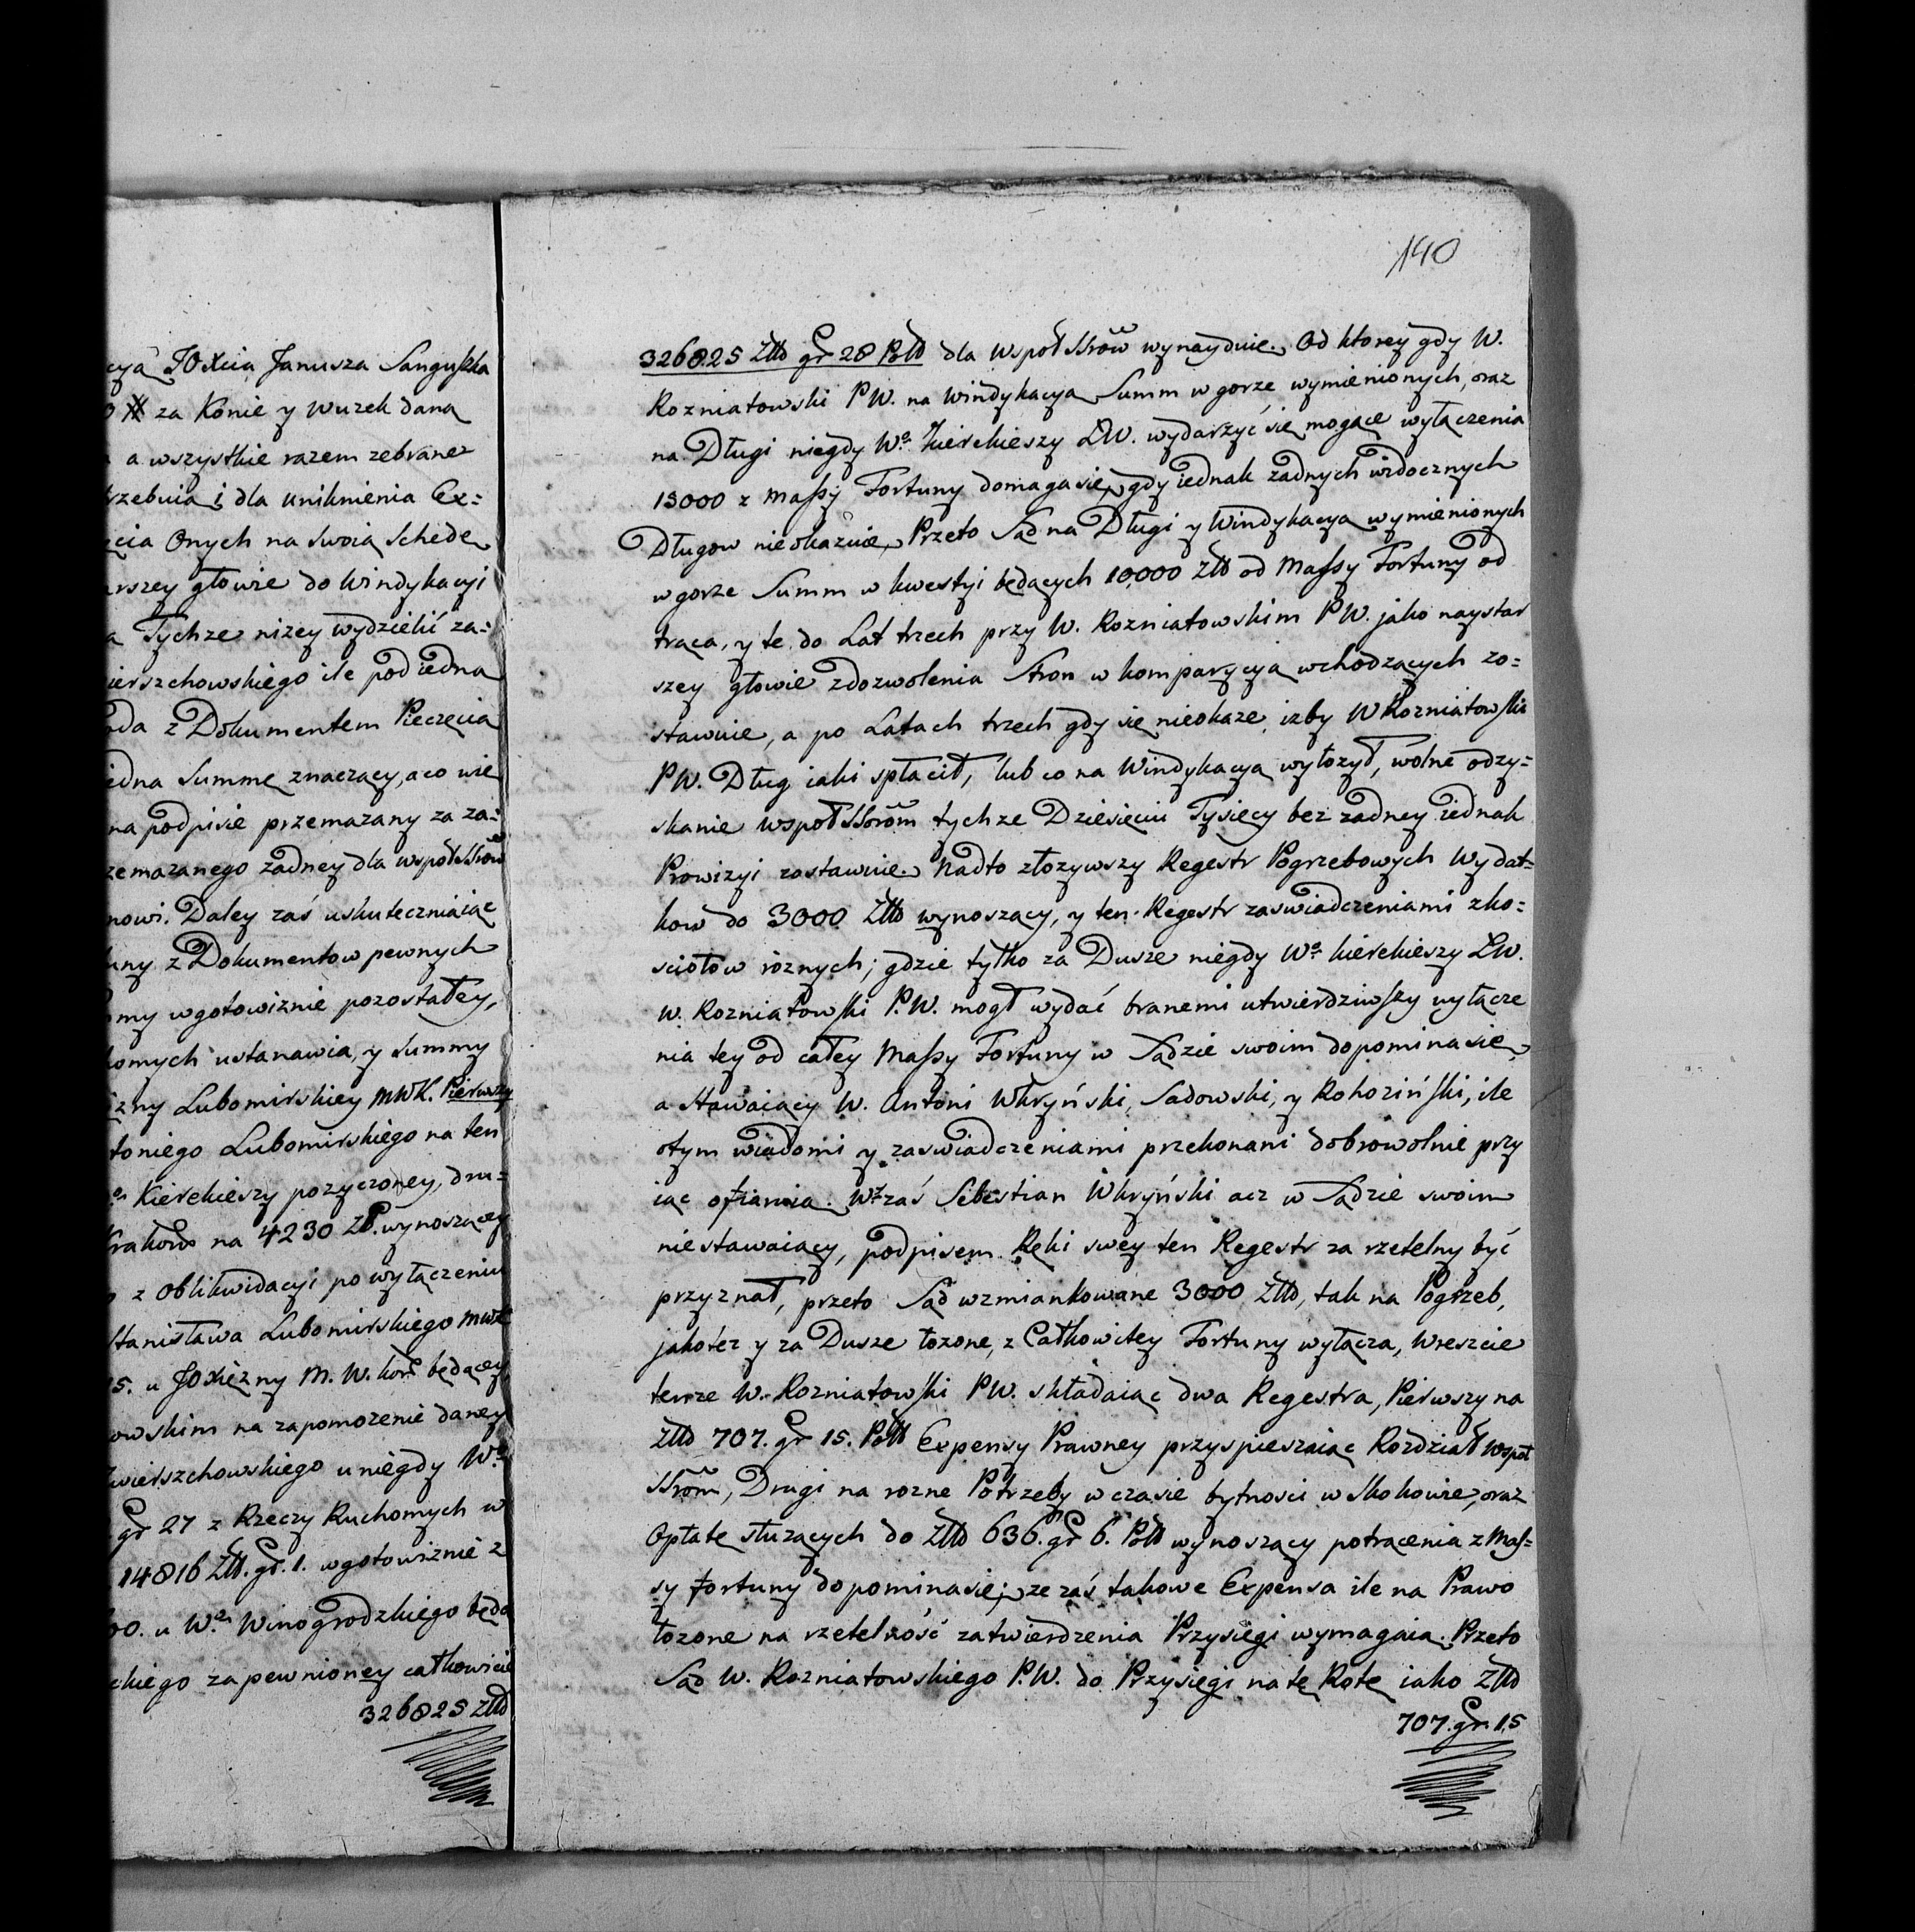 cya JOXcia Janusza Sanguszka
za Konie y wuzek dana
a wszystkie razem zebrane
trzebuia i dla uniknienia Ex=
ęcia Onych na Swoią Schedę
arszey głowie do Windykacyi
a Tychże niżey wydzielić za=
ierszchowskiego ile pod iedną
oda z Dokumentem Pieczęcią
iedna Summę znaczący, a co wie
na podpisie przemazany za za=
zemazanego żadney dla współSSrow
nowi. Daley zaś uskuteczniaiąc
uny z Dokumentow pewnych
my w gotowiznie pozostałey,
homych ustanawia, y Summy
ężny Lubomirskiey MWK. Pierwszy
toniego Lubomirskiego na ten
Kierekieszy pożyczoney, dru=
Krakow na 4230 Zł. wynoszącey
z Oblikwidacyi po wyłączeniu
Stanisława Lubomirskiego MWK
15. u JOXiężny M. W. Kor będącey
owskim na zapomożenie daney
Zwierszchowskiego u niegdy Wo
gr 27 z Rzeczy Ruchomych w
14816 Złł. gr. 1. w gotowiznie z
00. u Wo Winogrodzkiego będą
ckiego zapewnioney całkowicie
326825 złł
140
326825 Złł gr 28 Poll dla współSSrow wynayduie. Od ktorey gdy W.
Rozniatowski PW. na windykacyą Summ w gorze wymienionych, oraz
na Długi niegdy Wo Kierekieszy ŁW. wydarzyć się mogące wyłączenia
15000 z massy Fortuny domaga się, gdy iednak żadnych widocznych
Długow nieokazuie, Przeto Sąd na Długi y Windykacyą wymienionych
w gorze Summ w kwestyi będących 10,000 Złł od Massy Fortuny od
trąca, y te do Lat trzech przy W. Rozniatowskim PW. jako naystar
szey głowie z dozwolenia Stron w komparycyą wchodzących zo=
stawuie, a po Latach trzech gdy się nieokaże, iżby W Rozniatowski
PW. Dług iaki spłacił, lub co na Windykacyą wyłożył, wolne odzy=
skanie współSSrom tychże Dziesięciu Tysięcy bez żadney iednak
Prowizyi zostawuie. Nadto złożywszy Regestr Pogrzebowych Wydat=
kow do 3000 Złł wynoszący, y ten Regestr zaswiadczeniami z ko=
sciołow rożnych; gdzie tylko za Duszę niegdy Wo Kierekieszy ŁW.
W. Rozniatowski P.W. mogł wydać branemi utwierdziwszy wyłącze
nia tey od całey Massy Fortuny w Sądzie swoim dopomina się,
a Stawaiący W. Antoni Wkryński, Sadowski, y Rohoziński, ile
o tym wiadomi y zaswiadczeniami przekonani dobrowolnie przy
iąc ofiaruią. W. zaś Sebestian Wkryński acz w Sądzie swoim
niestawaiący, podpisem Ręki swey ten Regestr za rzetelny być
przyznał, przeto Sąd wzmiankowane 3000 Złł, tak na Pogrzeb,
jako też y za Duszę łożone, z Całkowitey Fortuny wyłącza, Wreszcie
tenże W. Rozniatowski PW. składaiąc dwa Regestra, Pierwszy na
Złł 707. gr 15. Poll Expensy Prawney przyspieszaiąc Rozdział współ
SSrom, Drugi na rożne Potrzeby w czasie bytności w Skokowie, oraz
Opłatę służących do Złł 636. gr 6. Poll wynoszący potrącenia z Mas=
sy fortuny dopomina się; że zaś takowe Expensa ile na Prawo
łożone na rzetelność zatwierdzenia Przysięgi wymagaią. Przeto
Sąd W. Rozniatowskiego P.W. do Przysięgi na tę Rotę iako Złł
707. gr. 15